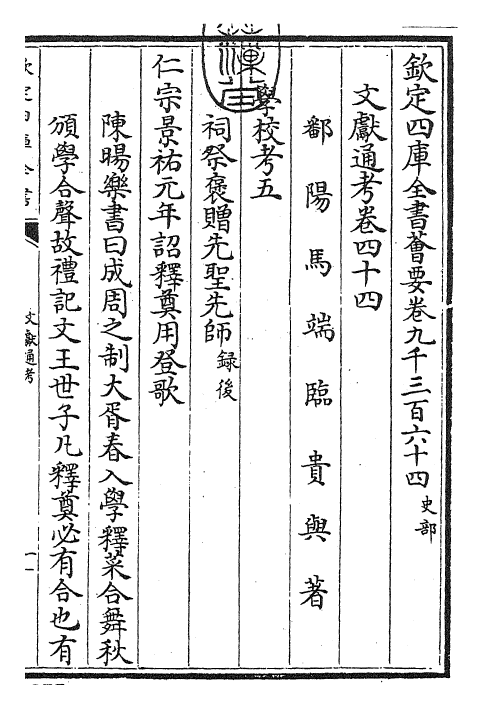 欽定四庫全書薈要卷九千三百六十四 史部
文獻通考卷四十四
鄱陽馬端臨貴與著
學校考五
祠祭褒贈先聖先師 錄後
仁宗景祐元年詔釋奠用登歌
陳暘樂書曰成周之制大胥春入學釋菜合舞秋
頒學合聲故禮記文王世子凡釋奠必有合也有
文獻通考
一